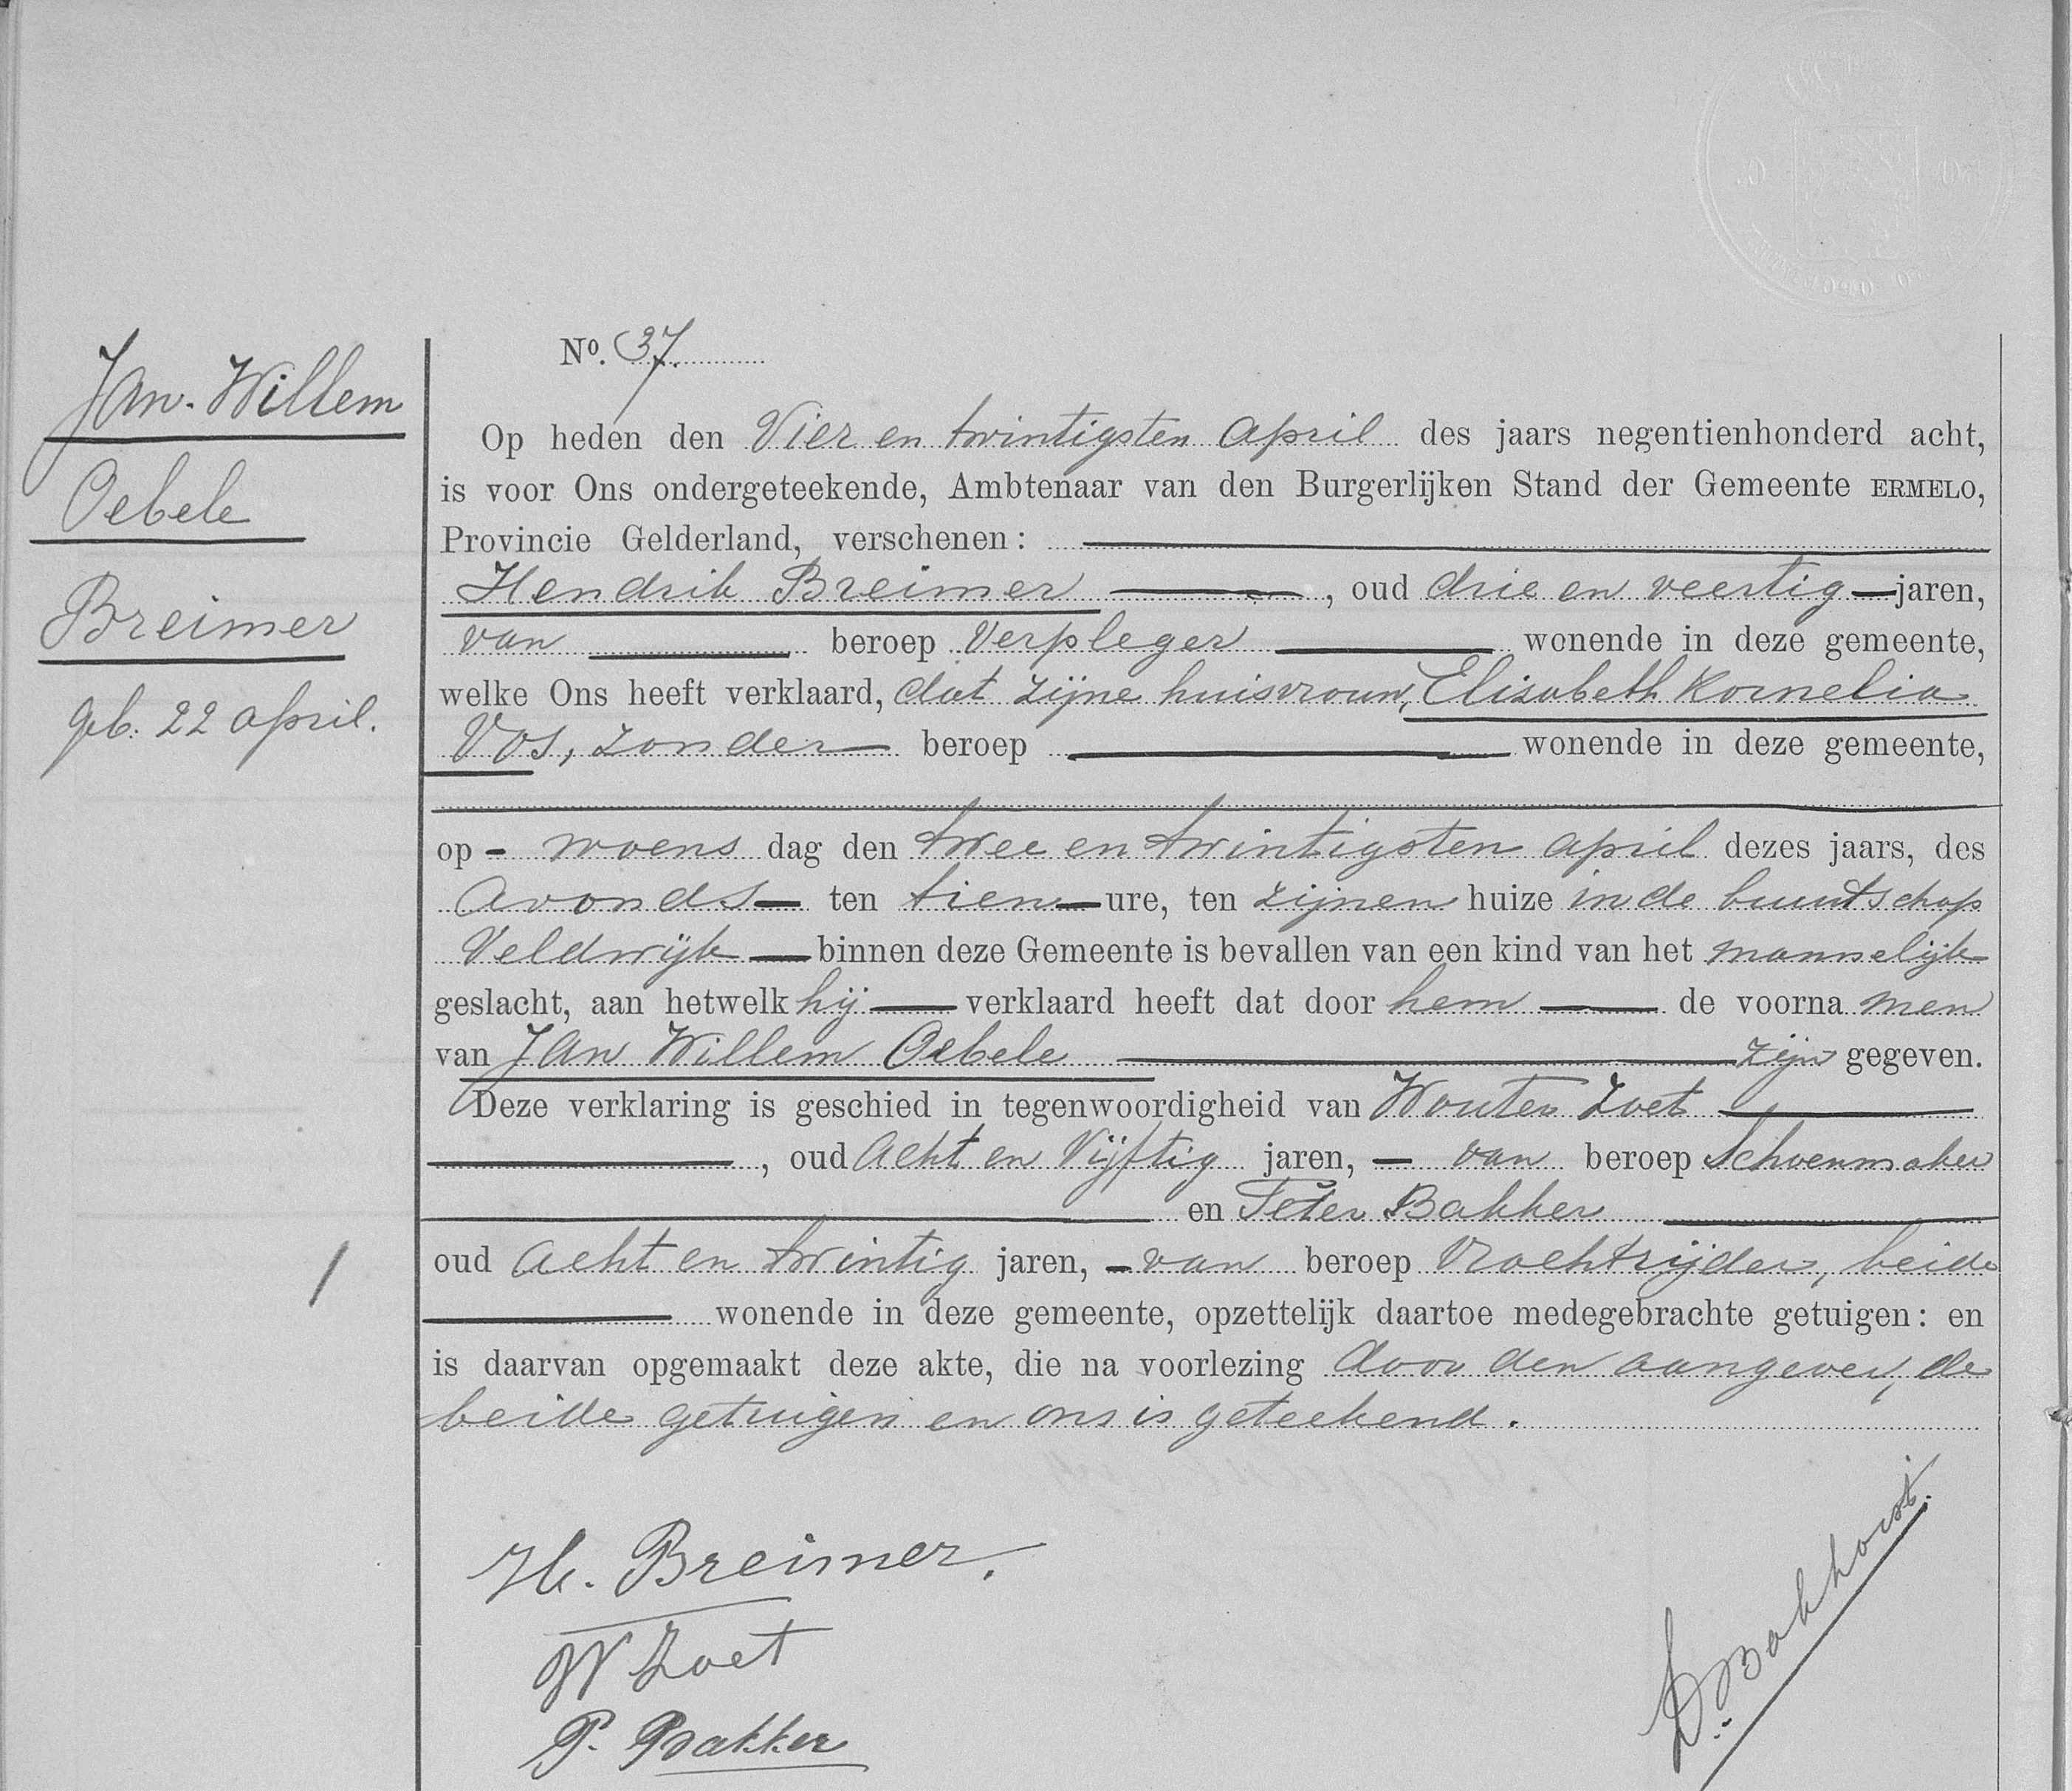 Jan Willem
Oebele
Breimer
geb. 22 april.
No. 37.
Op heden den Vier en twintigsten April des jaars negentienhonderd acht,
is voor Ons ondergeteekende, Ambtenaar van den Burgerlijken Stand der Gemeente ERMELO,
Provincie Gelderland, verschenen:
Hendrik Breimer, oud drie en veertig jaren,
van beroep Verpleger wonende in deze gemeente,
welke Ons heeft verklaard, dat zijne huisvrouw, Elisabeth Kornelia
Vos, zonder beroep wonende in deze gemeente,
op woens dag den twee en twintigsten april dezes jaars, des
avonds ten tien ure, ten zijnen huize in de buurtschap
Veldwijk binnen deze Gemeente is bevallen van een kind van het mannelijk
geslacht, aan hetwelk hij verklaard heeft dat door hem de voorna men
van Jan Willem Oebele zijn gegeven.
Deze verklaring is geschied in tegenwoordigheid van Wouter Zoet
, oud Acht en Vijftig jaren, van beroep Schoenmaker
en Peter Bakker
oud Acht en twintig jaren, van beroep Vrachtrijder, beide
wonende in deze gemeente, opzettelijk daartoe medegebrachte getuigen: en
is daarvan opgemaakt deze akte, die na voorlezing door den aangever, de
beide getuigen en ons is geteekend.
H. Breimer.
W Zoet
P. Bakker
D. Bakhorst.